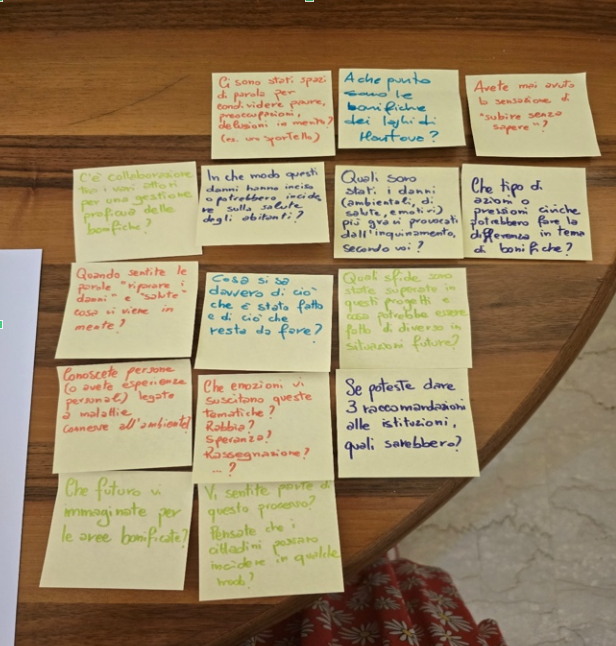 Ci sono stati spazi
di parola per
condividere paure,
preoccupazioni,
delusioni in merito?
(es. uno sportello)
A che punto
sono le
bonifiche
dei laghi di
Mantova?
Avete mai avuto
la sensazione di
"subire senza
sapere"?
C'è collaborazione
tra i vari attori
per una gestione
proficua delle
bonifiche?
In che modo questi
danni hanno inciso
o potrebbero incide
re sulla salute
degli abitanti?
Quali sono
stati i danni
(ambientali, di
salute, emotivi)
più gravi provocati
dall'inquinamento,
secondo voi?
Che tipo di
azioni o
pressioni civiche
potrebbero fare la
differenza in tema
di bonifiche?
Quando sentite le
parole "riparare i
danni" e "salute"
cosa vi viene in
mente?
Cosa si sa
davvero di ciò
che è stato fatto
e di ciò che
resta da fare?
Quali sfide sono
state superate in
questi progetti e
cosa potrebbe essere
fatto di diverso in
situazioni future?
Conoscete persone
(o avete esperienze
personali) legato
a malattie
connesse all'ambiente?
Che emozioni vi
suscitano queste
tematiche?
Rabbia?
Speranza?
Rassegnazione?
...?
Se poteste dare
3 raccomandazioni
alle istituzioni,
quali sarebbero?
Che futuro vi
immaginate per
le aree bonificate?
Vi sentite parte di
questo processo?
Pensate che i
cittadini possano
incidere in qualche
modo?